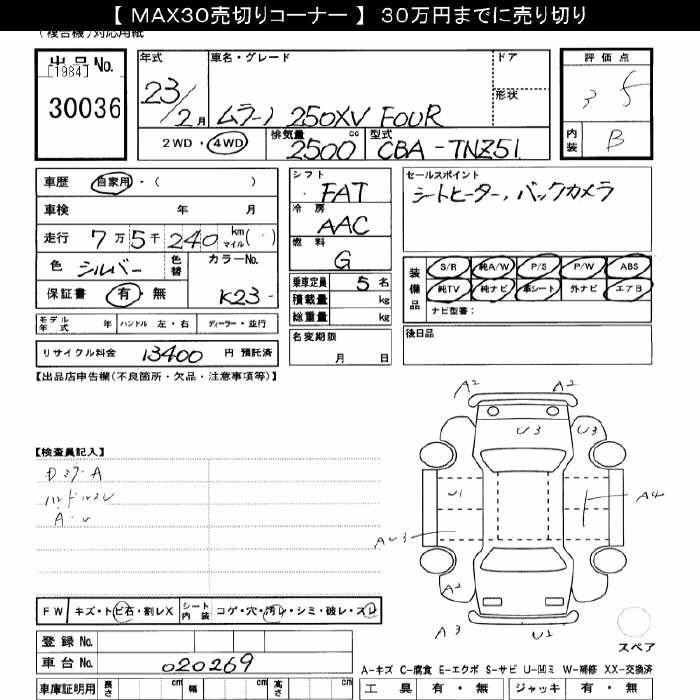 【 MAX30売切りコーナー 】 30万円までに売り切り
(複合機)対応用紙
出品No.
[1984]
30036
年式 車名・グレード ドア
23/2月 ムラーノ 250XV FOUR 形状
2WD・4WD 排気量 2500 cc 型式 CBA-TNZ51
評価点
内装 B
車歴 自家用・( )
車検 年 月
走行 7万5千240 km マイル( )
色 シルバー 色替 カラーNo.
保証書 有・無 K23
モデル年式 年 ハンドル 左・右 ディーラー・並行
リサイクル料金 13400 円 預託済
シフト FAT
冷房 AAC
燃料 G
乗車定員 5 名
積載量 kg
総重量 kg
名変期限
月 日
セールスポイント
シートヒーター, バックカメラ
装備品 S/R 純A/W P/S P/W ABS
純TV 純ナビ 革シート 外ナビ エアB
ナビ型番:
後日品
【出品店申告欄(不良箇所・欠品・注意事項等)】
【検査員記入】
A2 A2
U3 U3
U1 A4
AU3
A2
A3 U2
スペア
FW キズ・トビ石・割レX シート内装 コゲ・穴・汚レ・シミ・破レ・スレ
登録 No.
車台 No. 020269
車庫証明用 長さ cm 幅 cm 高さ cm
A-キズ C-腐食 E-エクボ S-サビ U-凹ミ W-補修 XX-交換済
工具 有・無 ジャッキ 有・無